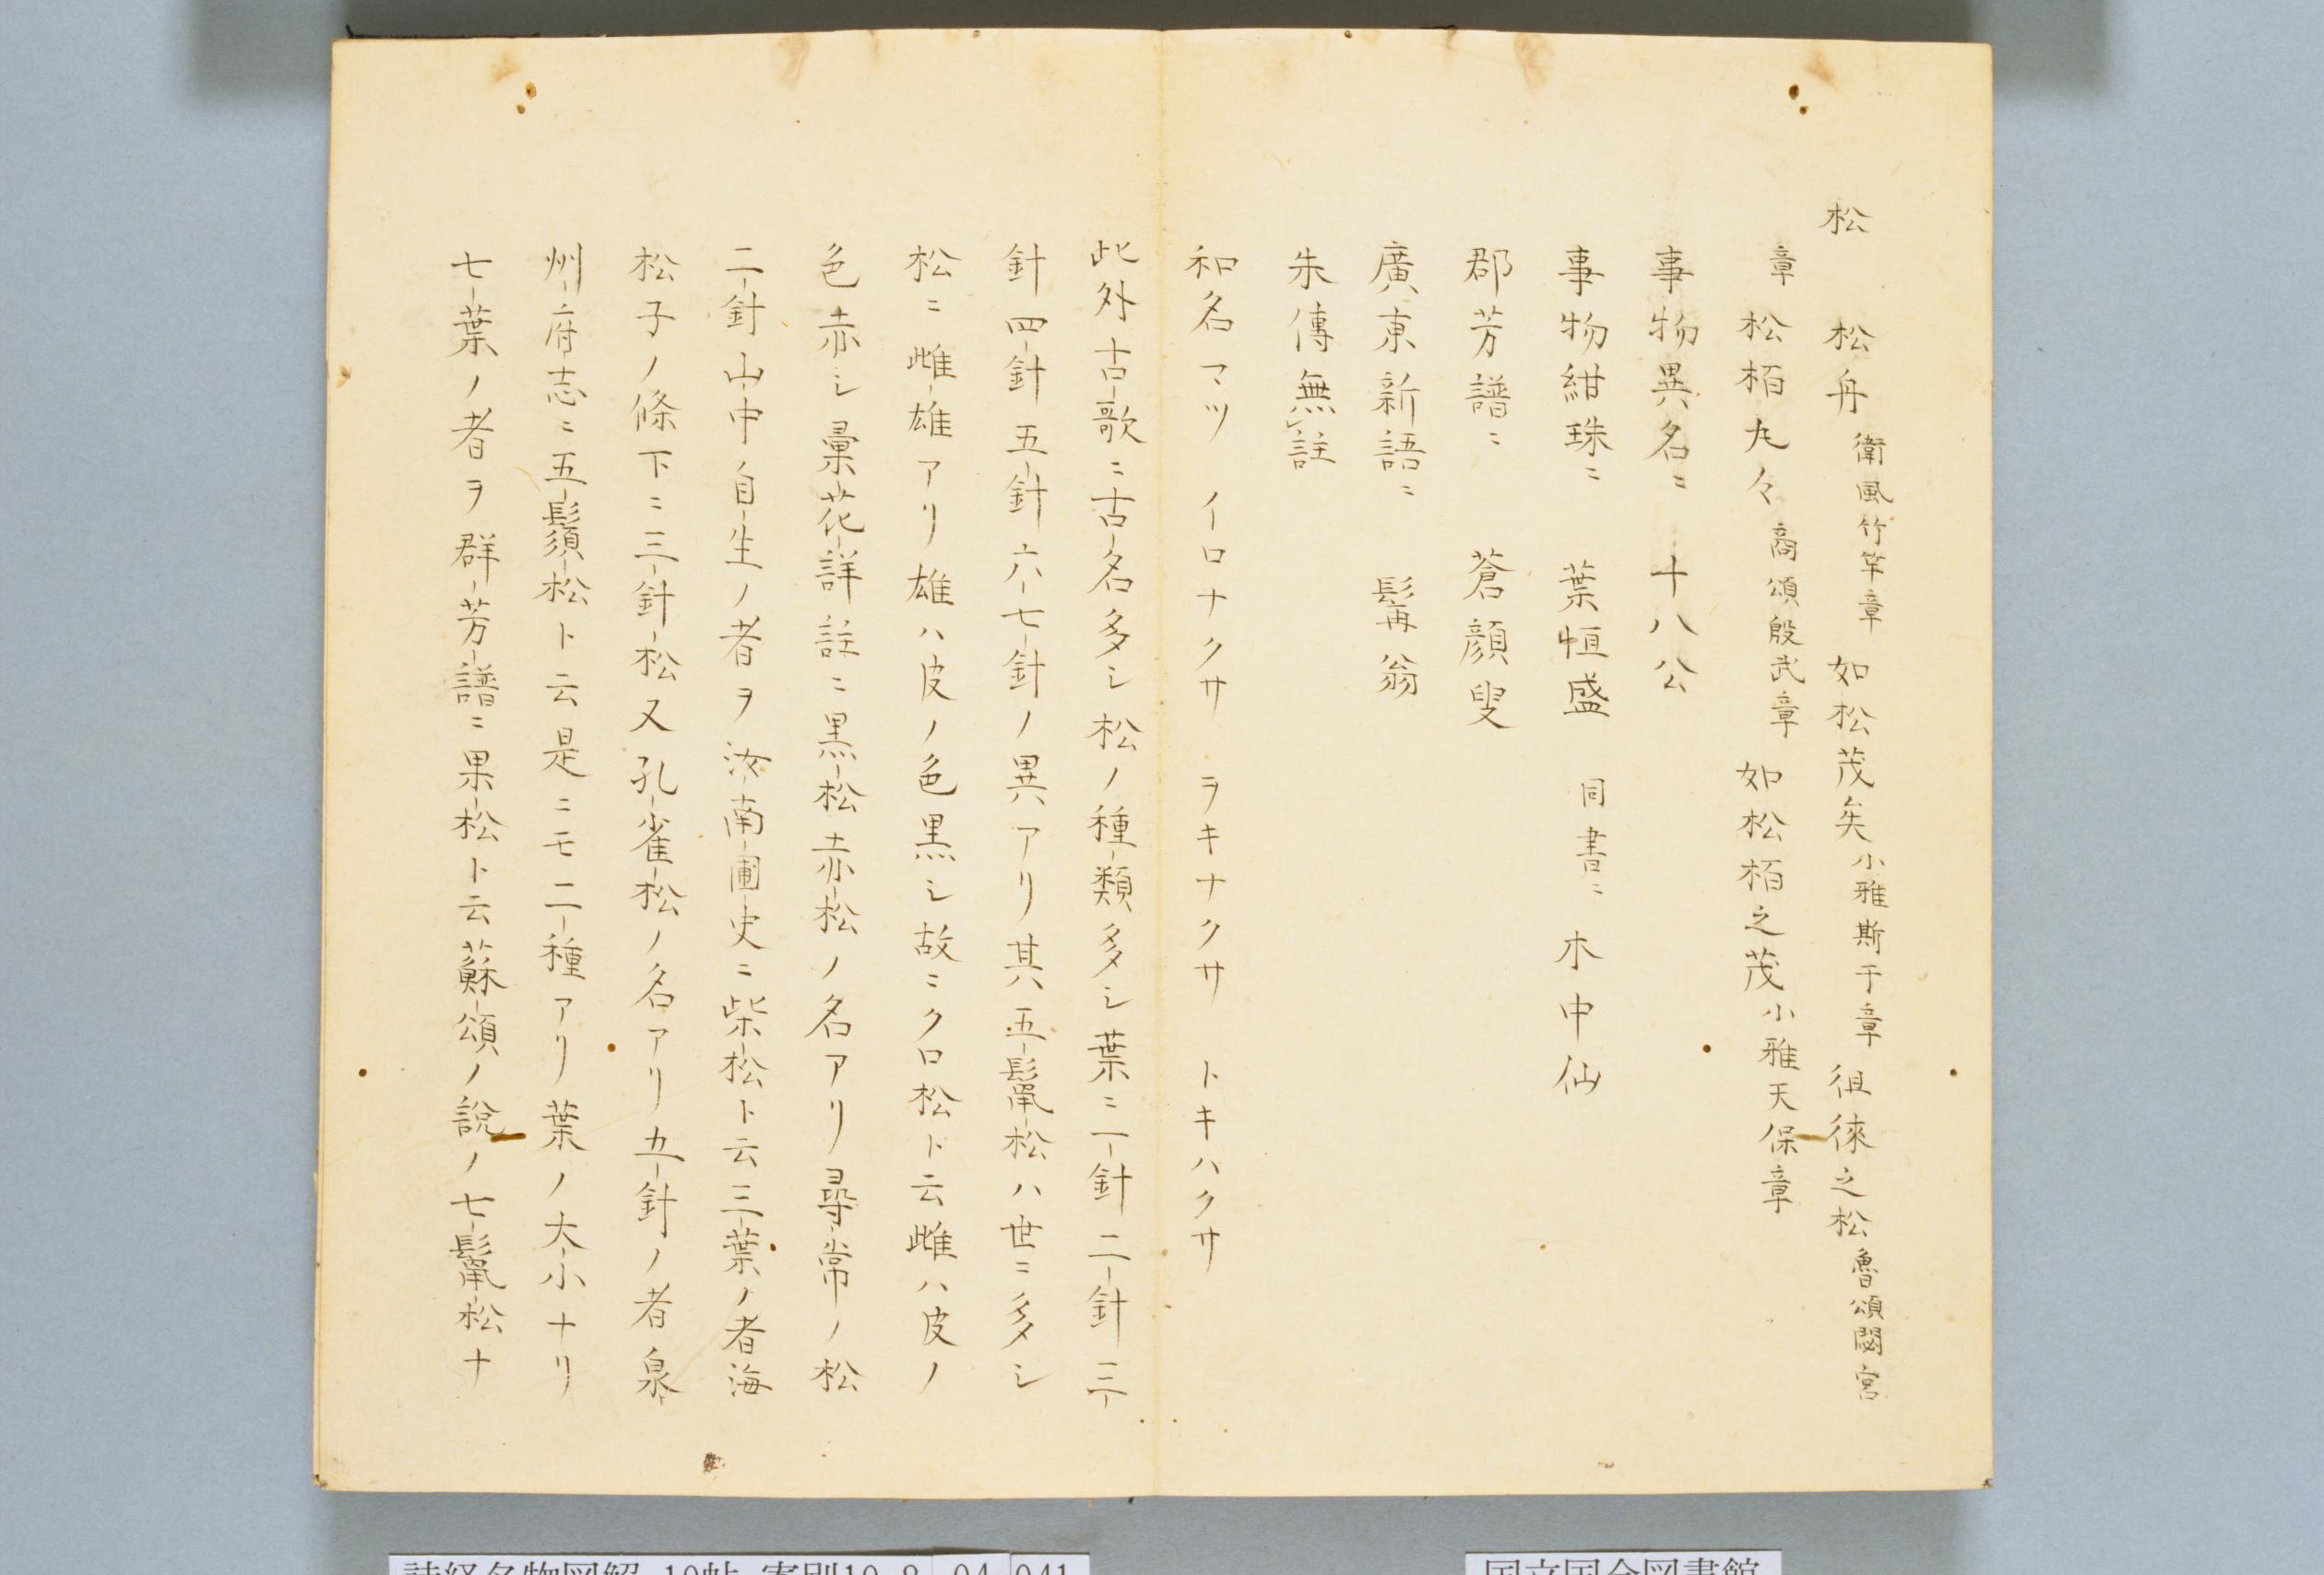 松 松舟衛風竹竿章 如松茂矣小雅斯干章 徂徠之松魯頌閟宮
章 松栢丸々商頌殷武章 如松栢之茂小雅天保章
事物異名ニ 十八公
事物紺珠ニ 葉恒盛 同書ニ 木中仙
郡芳譜ニ 蒼顔叟
廣東新語ニ 髯翁
朱傳無註
和名マツ イロナクサ ヲキナクサ トキハクサ
此外古歌ニ古名多シ松ノ種類多シ葉ニ一針二針三
針四針五針六七針ノ異アリ其五鬣松ハ世ニ多シ
松ニ雌雄アリ雄ハ皮ノ色黒シ故ニクロ松ト云雌ハ皮ノ
色赤シ彙花詳註ニ黒松赤松ノ名アリ尋常ノ松
二針山中自生ノ者ヲ汝南圃史ニ柴松ト云三葉ノ者海
松子ノ條下ニ三針松又孔雀松ノ名アリ五針ノ者泉
州府志ニ五鬚松ト云是ニモ二種アリ葉ノ大小ナリ
七葉ノ者ヲ群芳譜ニ果松ト云蘇頌ノ説ノ七鬣松ナ
詩経名物図解 10帖 寄別10-8 04 041
国立国会図書館